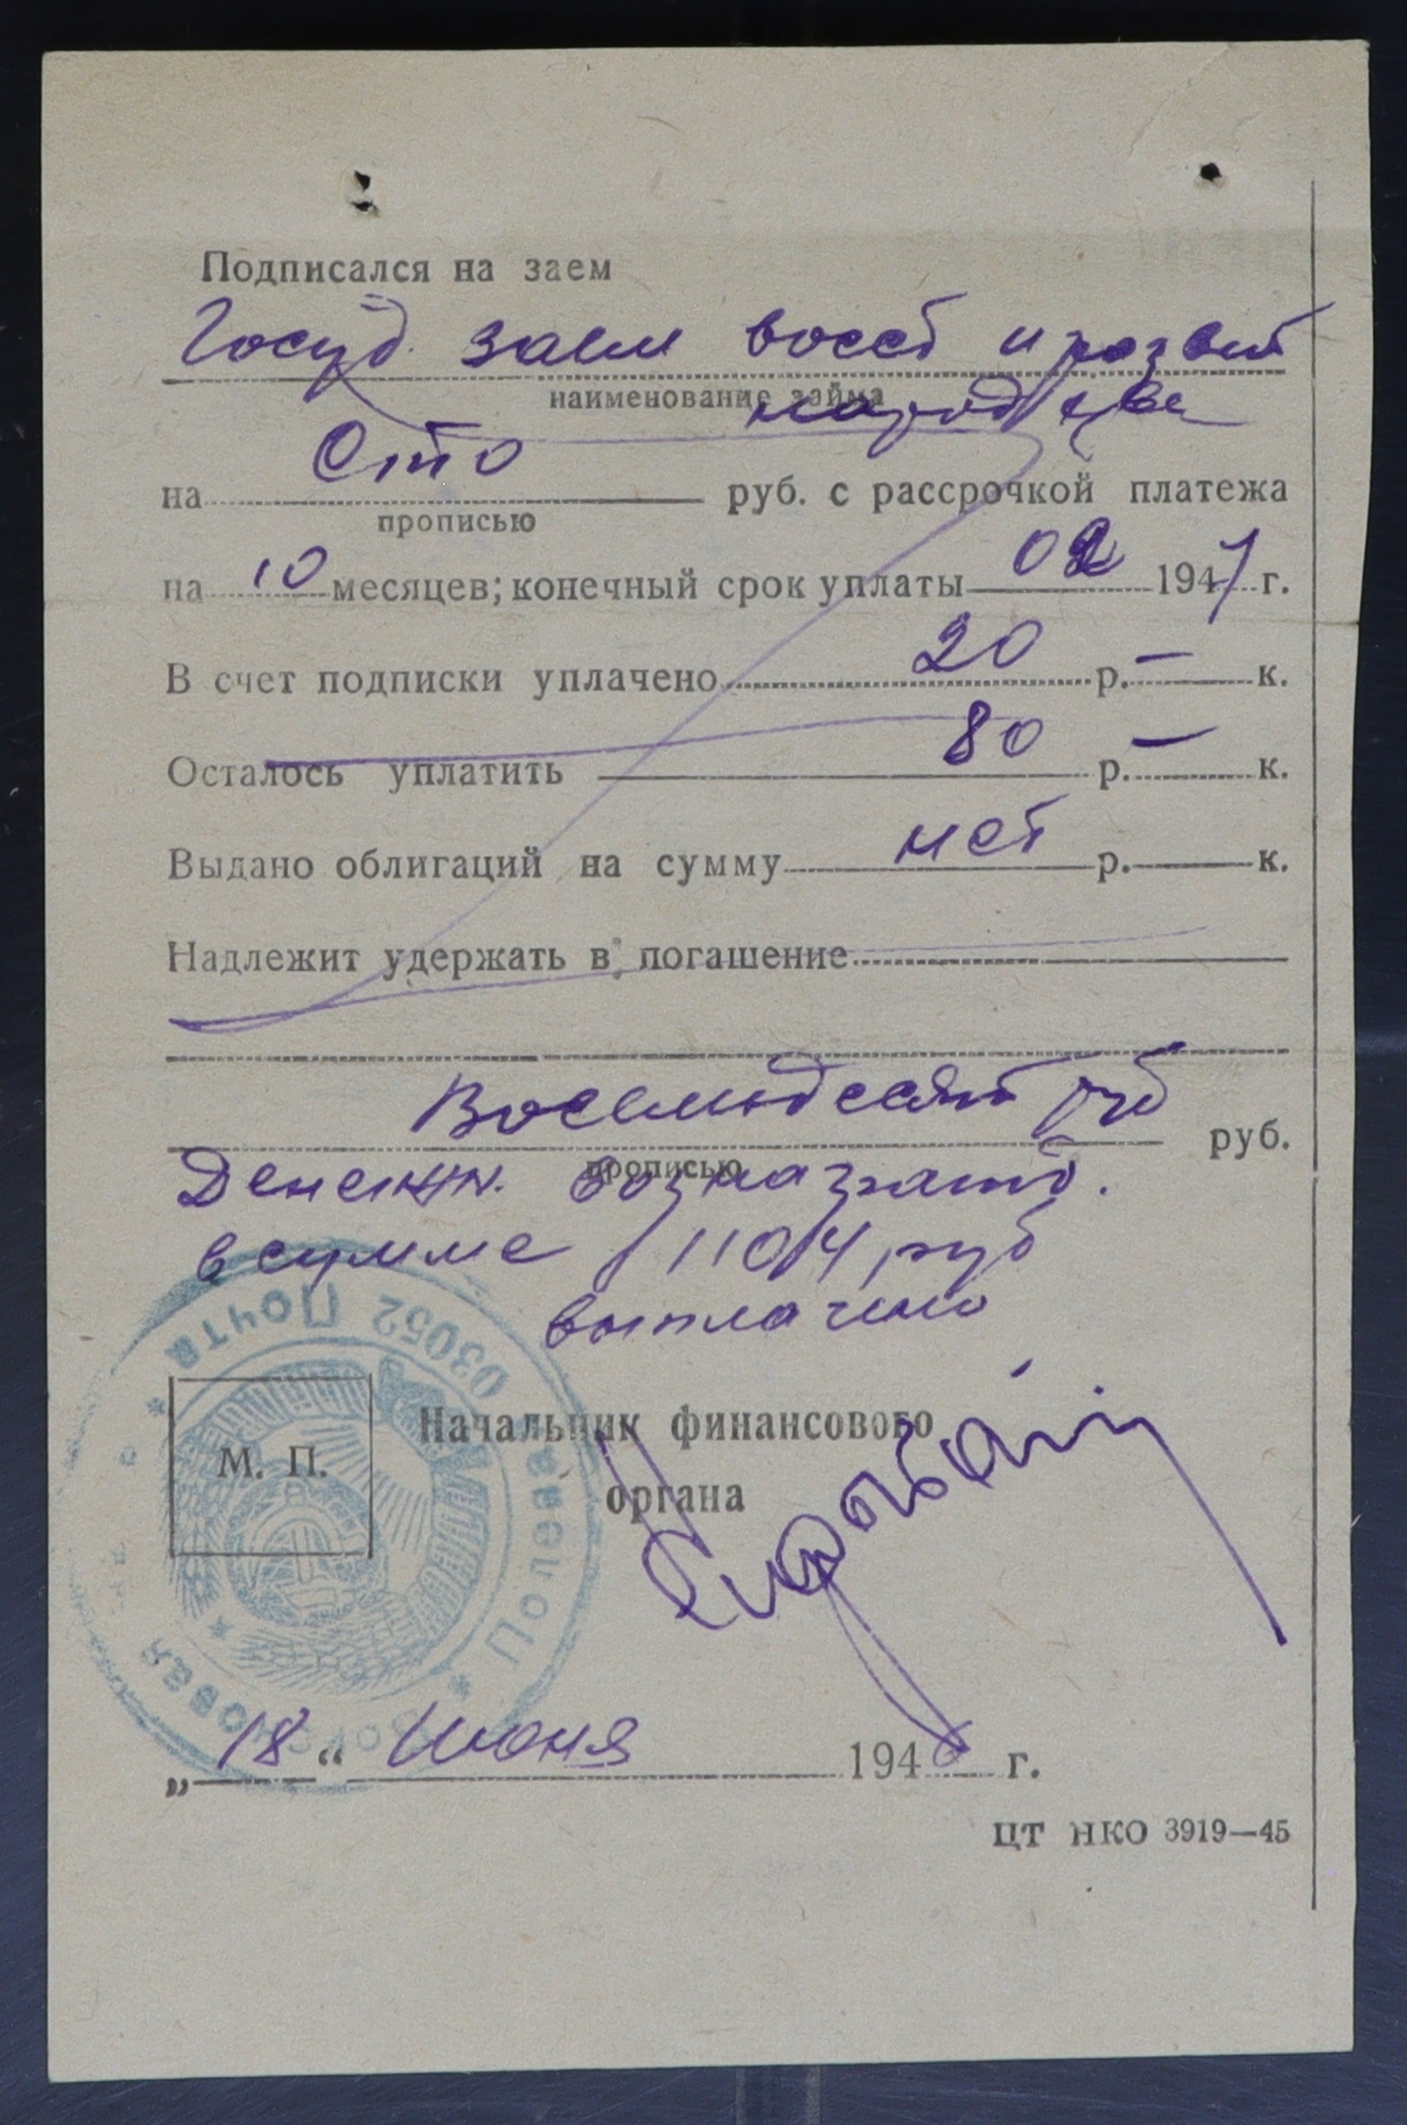 Подписался на заем
Госуд. заем восст и развит
наименование займа
народ х-ва
Сто
на руб. с рассрочкой платежа
прописью
на 10 месяцев; конечный срок уплаты 02 1947 г.
В счет подписки уплачено 20 р. — к.
Осталось уплатить 80 р. — к.
Выдано облигаций на сумму нет р. к.
Надлежит удержать в погашение
Восемьдесят руб
руб.
прописью
Денежн. вознагражд.
в сумме /1104 руб
выплачено
Начальник финансового
органа
М. П.
03052 Почта * Полевая *
„18“ Июня 1946 г.
ЦТ НКО 3919—45